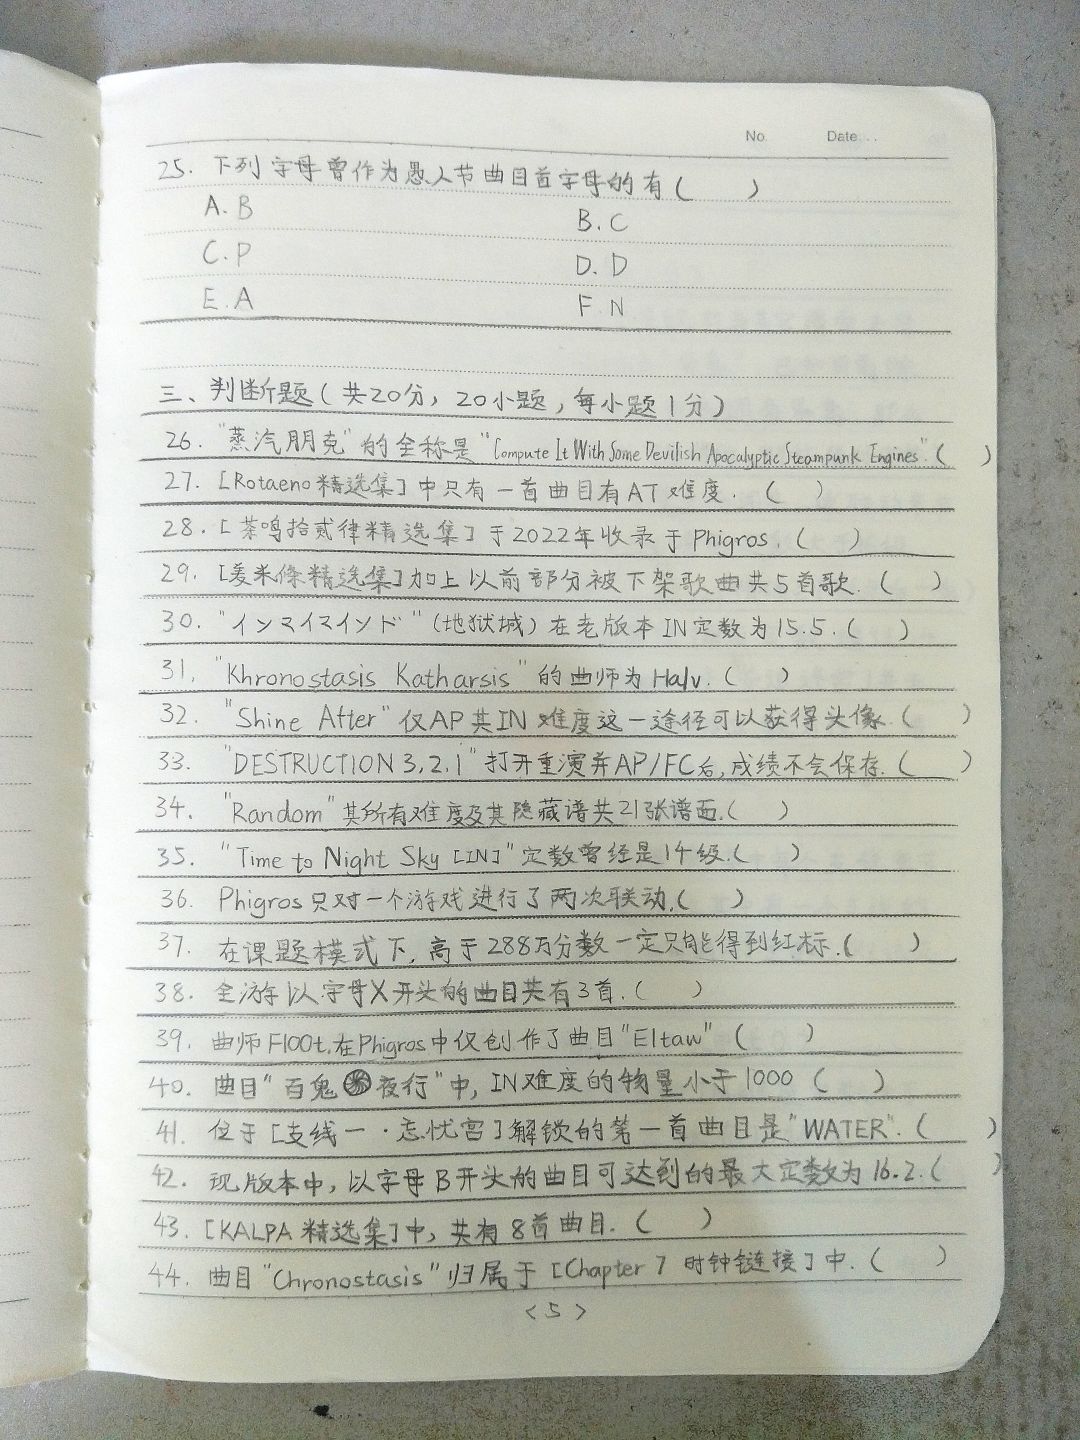 No. Date...
25. 下列字母曾作为愚人节曲目首字母的有(    )
A. B    B. C
C. P    D. D
E. A    F. N
三、判断题(共20分，20小题，每小题1分)
26. "蒸汽朋克"的全称是"Compute It With Some Devilish Apocalyptic Steampunk Engines".(    )
27. [Rotaeno精选集]中只有一首曲目有AT难度.(    )
28. [茶鸣拾贰律精选集]于2022年收录于Phigros.(    )
29. [麦米條精选集]加上以前部分被下架歌曲共5首歌.(    )
30. "インマイマインド"(地狱城)在老版本IN定数为15.5.(    )
31. "Khronostasis Katharsis"的曲师为Halv.(    )
32. "Shine After"仅AP其IN难度这一途径可以获得头像.(    )
33. "DESTRUCTION 3,2,1"打开重演并AP/FC后,成绩不会保存.(    )
34. "Random"其所有难度及其隐藏谱共21张谱面.(    )
35. "Time to Night Sky [IN]"定数曾经是14级.(    )
36. Phigros只对一个游戏进行了两次联动.(    )
37. 在课题模式下,高于288万分数一定只能得到红标.(    )
38. 全游以字母X开头的曲目共有3首.(    )
39. 曲师Fl00t.在Phigros中仅创作了曲目"Eltaw"(    )
40. 曲目"百鬼夜行"中,IN难度的物量小于1000(    )
41. 位于[支线一·忘忧宫]解锁的第一首曲目是"WATER".(    )
42. 现版本中,以字母B开头的曲目可达到的最大定数为16.2.(    )
43. [KALPA精选集]中,共有8首曲目.(    )
44. 曲目"Chronostasis"归属于[Chapter 7 时钟链接]中.(    )
<5>